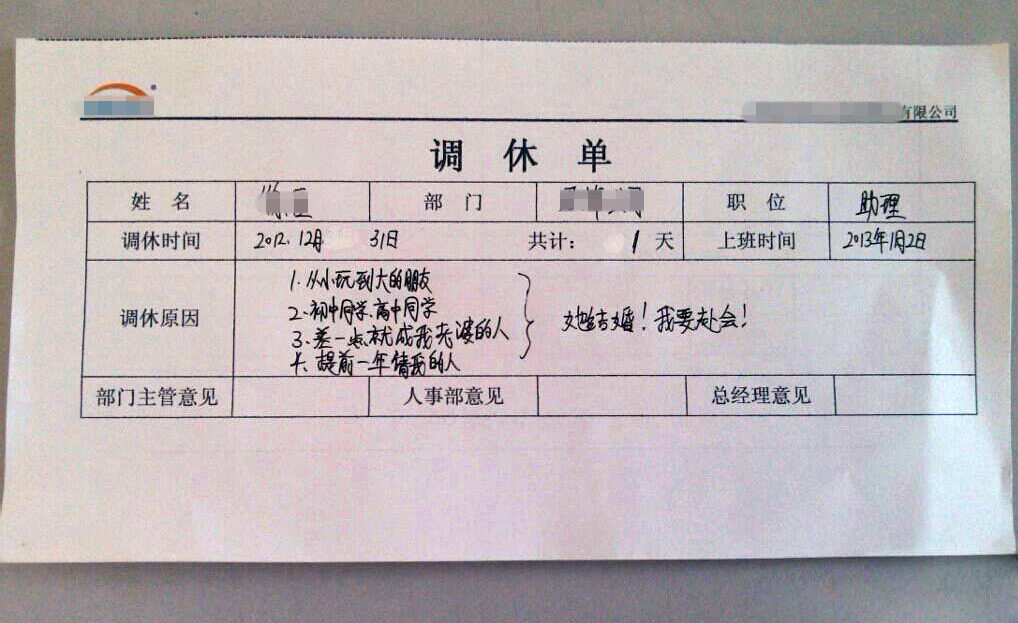 有限公司
调休单
姓名 部门 职位 助理
调休时间 2012.12月 31日 共计: 1 天 上班时间 2013年1月2日
调休原因
1.从小玩到大的朋友
2.初中同学、高中同学
3.差一点就成我老婆的人
4.提前一年请我的人
她结婚!我要赴会!
部门主管意见 人事部意见 总经理意见